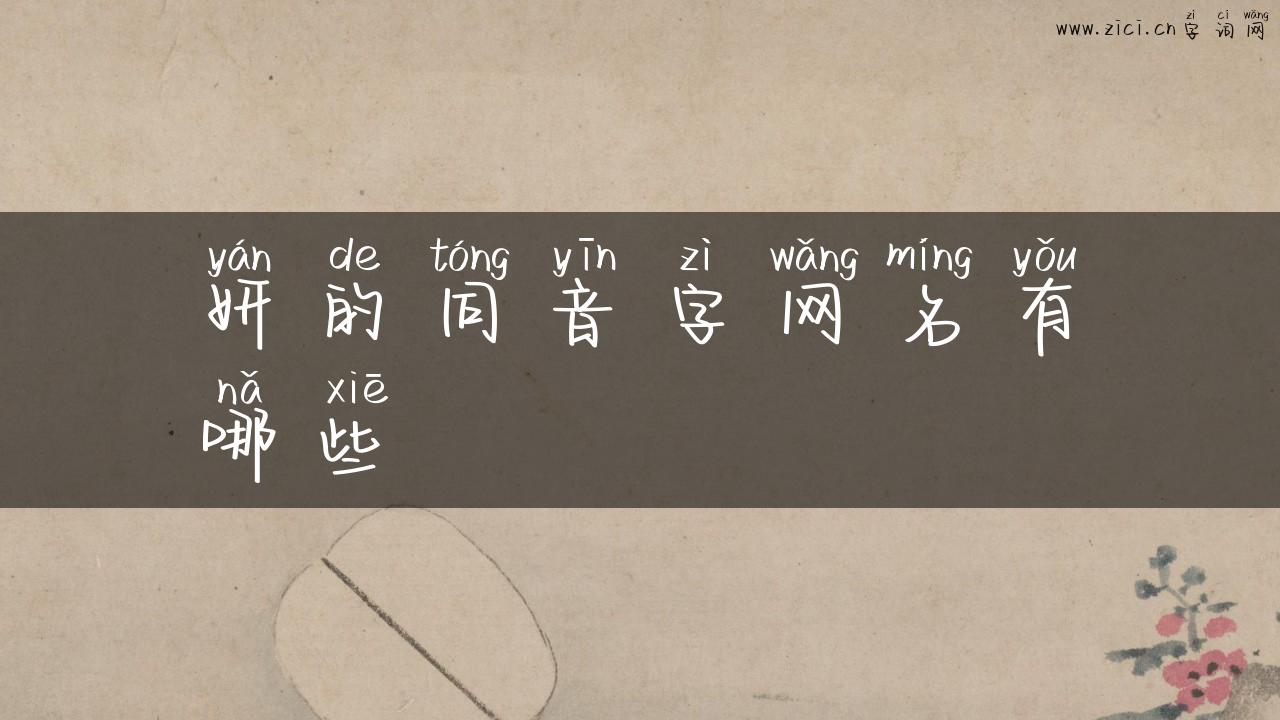 zì cí wǎng
www.zici.cn字词网
yán de tóng yīn zì wǎng míng yǒu
妍的同音字网名有
nǎ xiē
哪些